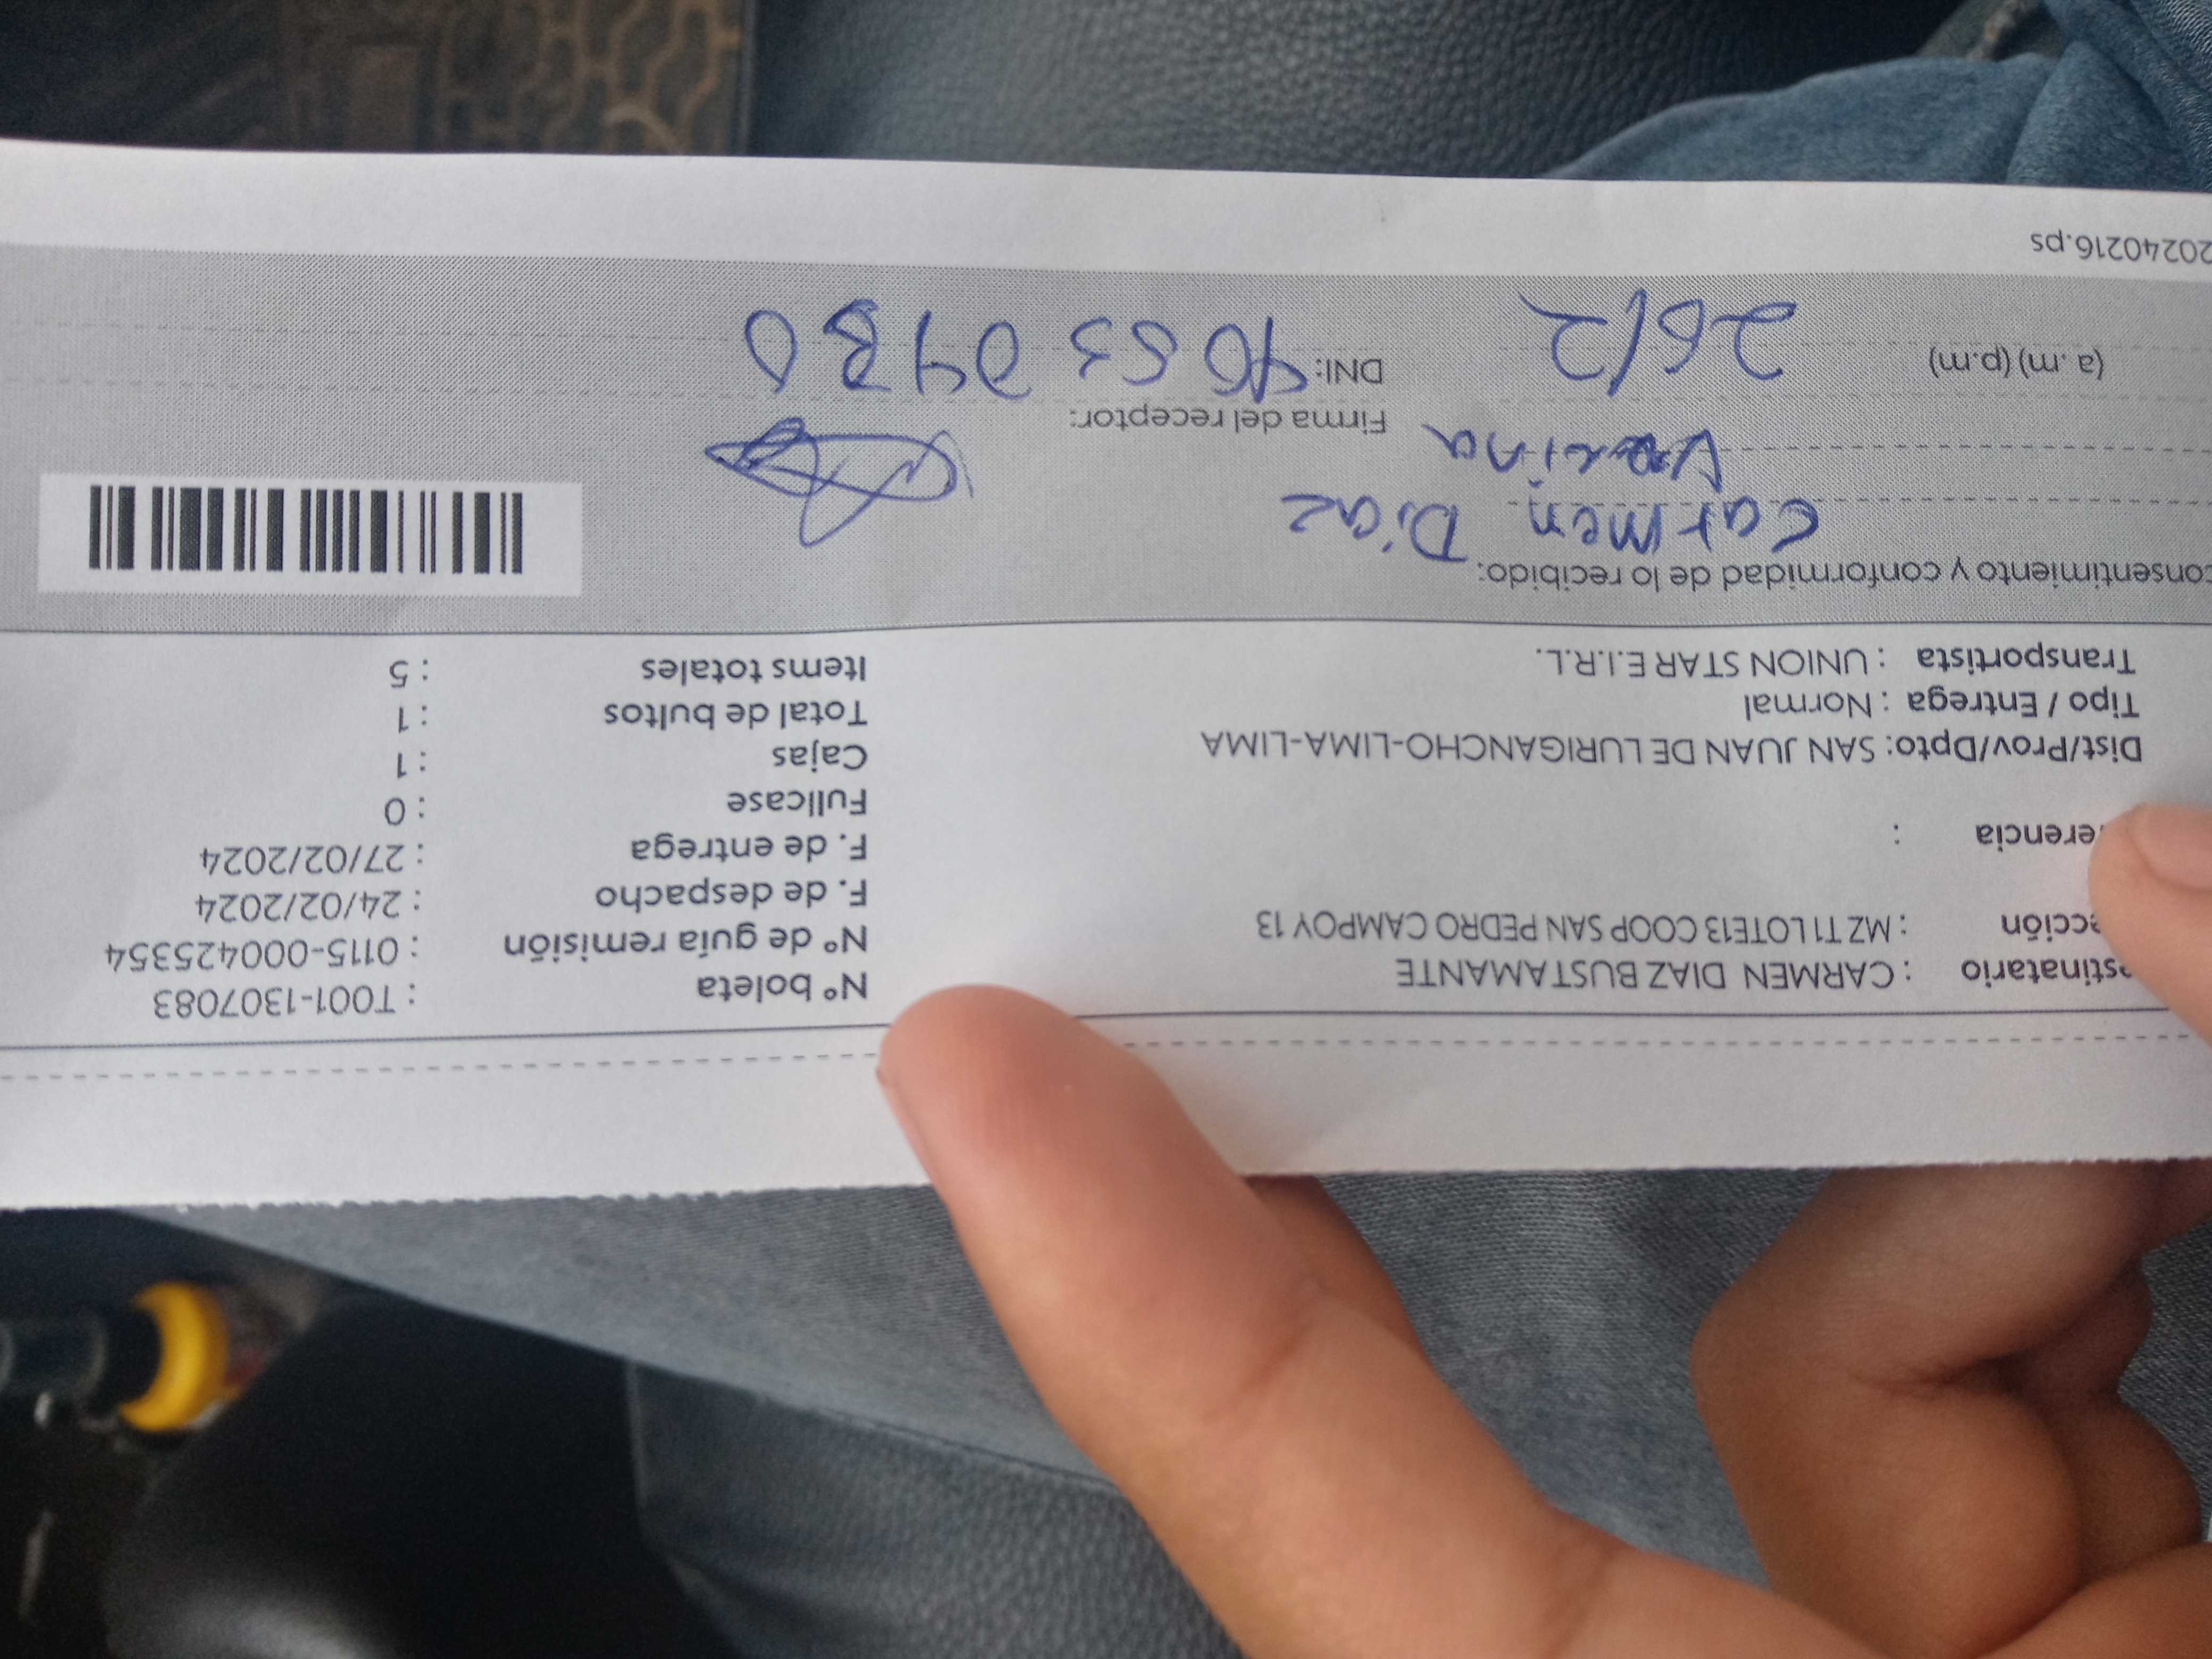 stinatario : CARMEN DIAZ BUSTAMANTE
ección : MZ T1 LOTE13 COOP SAN PEDRO CAMPOY 13
erencia :
Dist/Prov/Dpto: SAN JUAN DE LURIGANCHO-LIMA-LIMA
Tipo / Entrega : Normal
Transportista : UNION STAR E.I.R.L.
N° boleta : T001-1307083
N° de guía remisión : 0115-000425354
F. de despacho : 24/02/2024
F. de entrega : 27/02/2024
Fullcase : 0
Cajas : 1
Total de bultos : 1
Items totales : 5
onsentimiento y conformidad de lo recibido:
Carmen Diaz
Firma del receptor:
(a.m) (p.m) 26/2
DNI:
20240216.ps